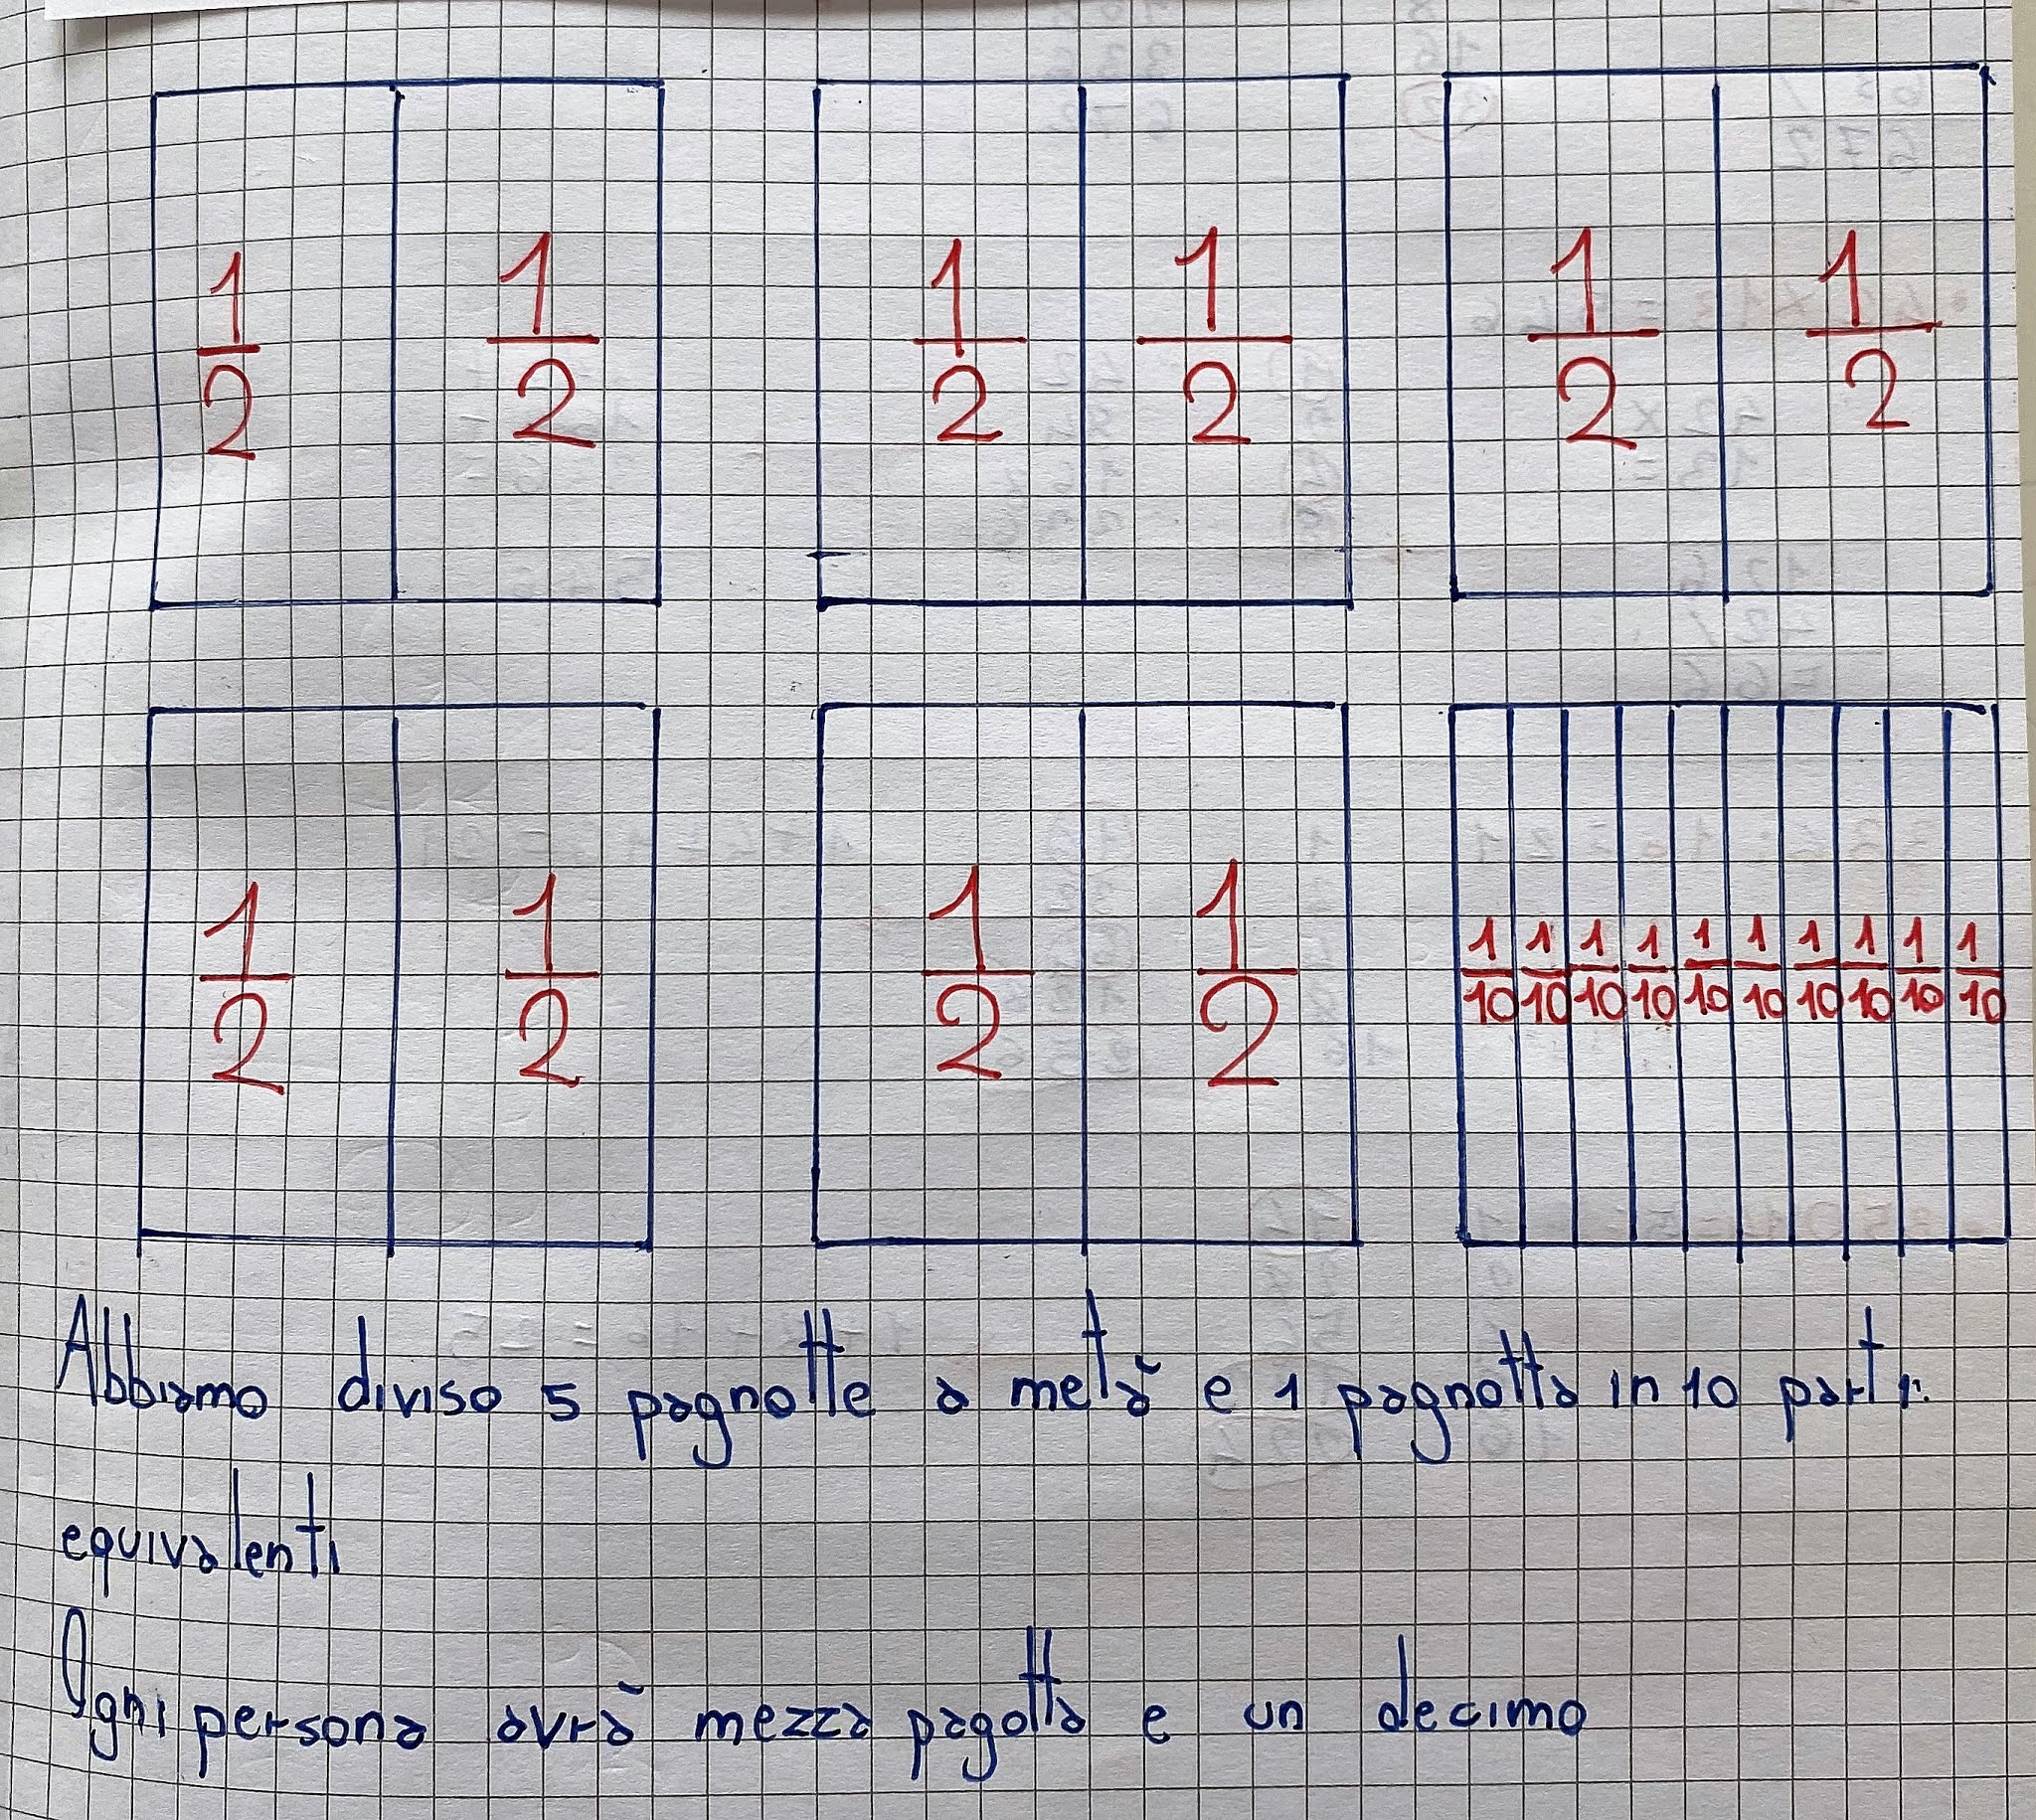 1/2 1/2 1/2 1/2 1/2 1/2
1/2 1/2 1/2 1/2 1/10 1/10 1/10 1/10 1/10 1/10 1/10 1/10 1/10 1/10
Abbiamo diviso 5 pagnotte a metà e 1 pagnotta in 10 parti
equivalenti
Ogni persona avrà mezza pagotta e un decimo